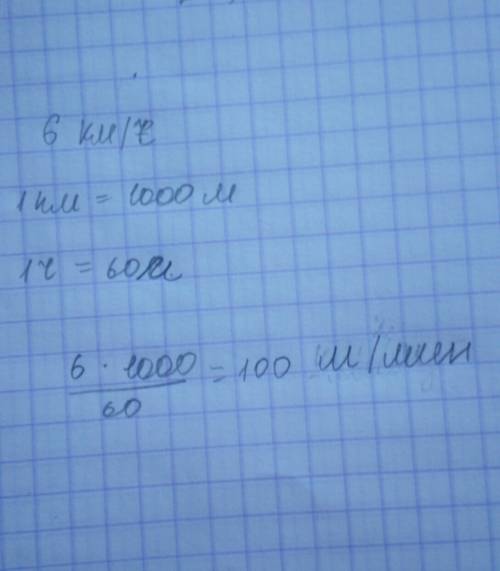 6 км/ч
1 км = 1000 м
1 ч = 60 м
6 · 1000 / 60 = 100 м/мин